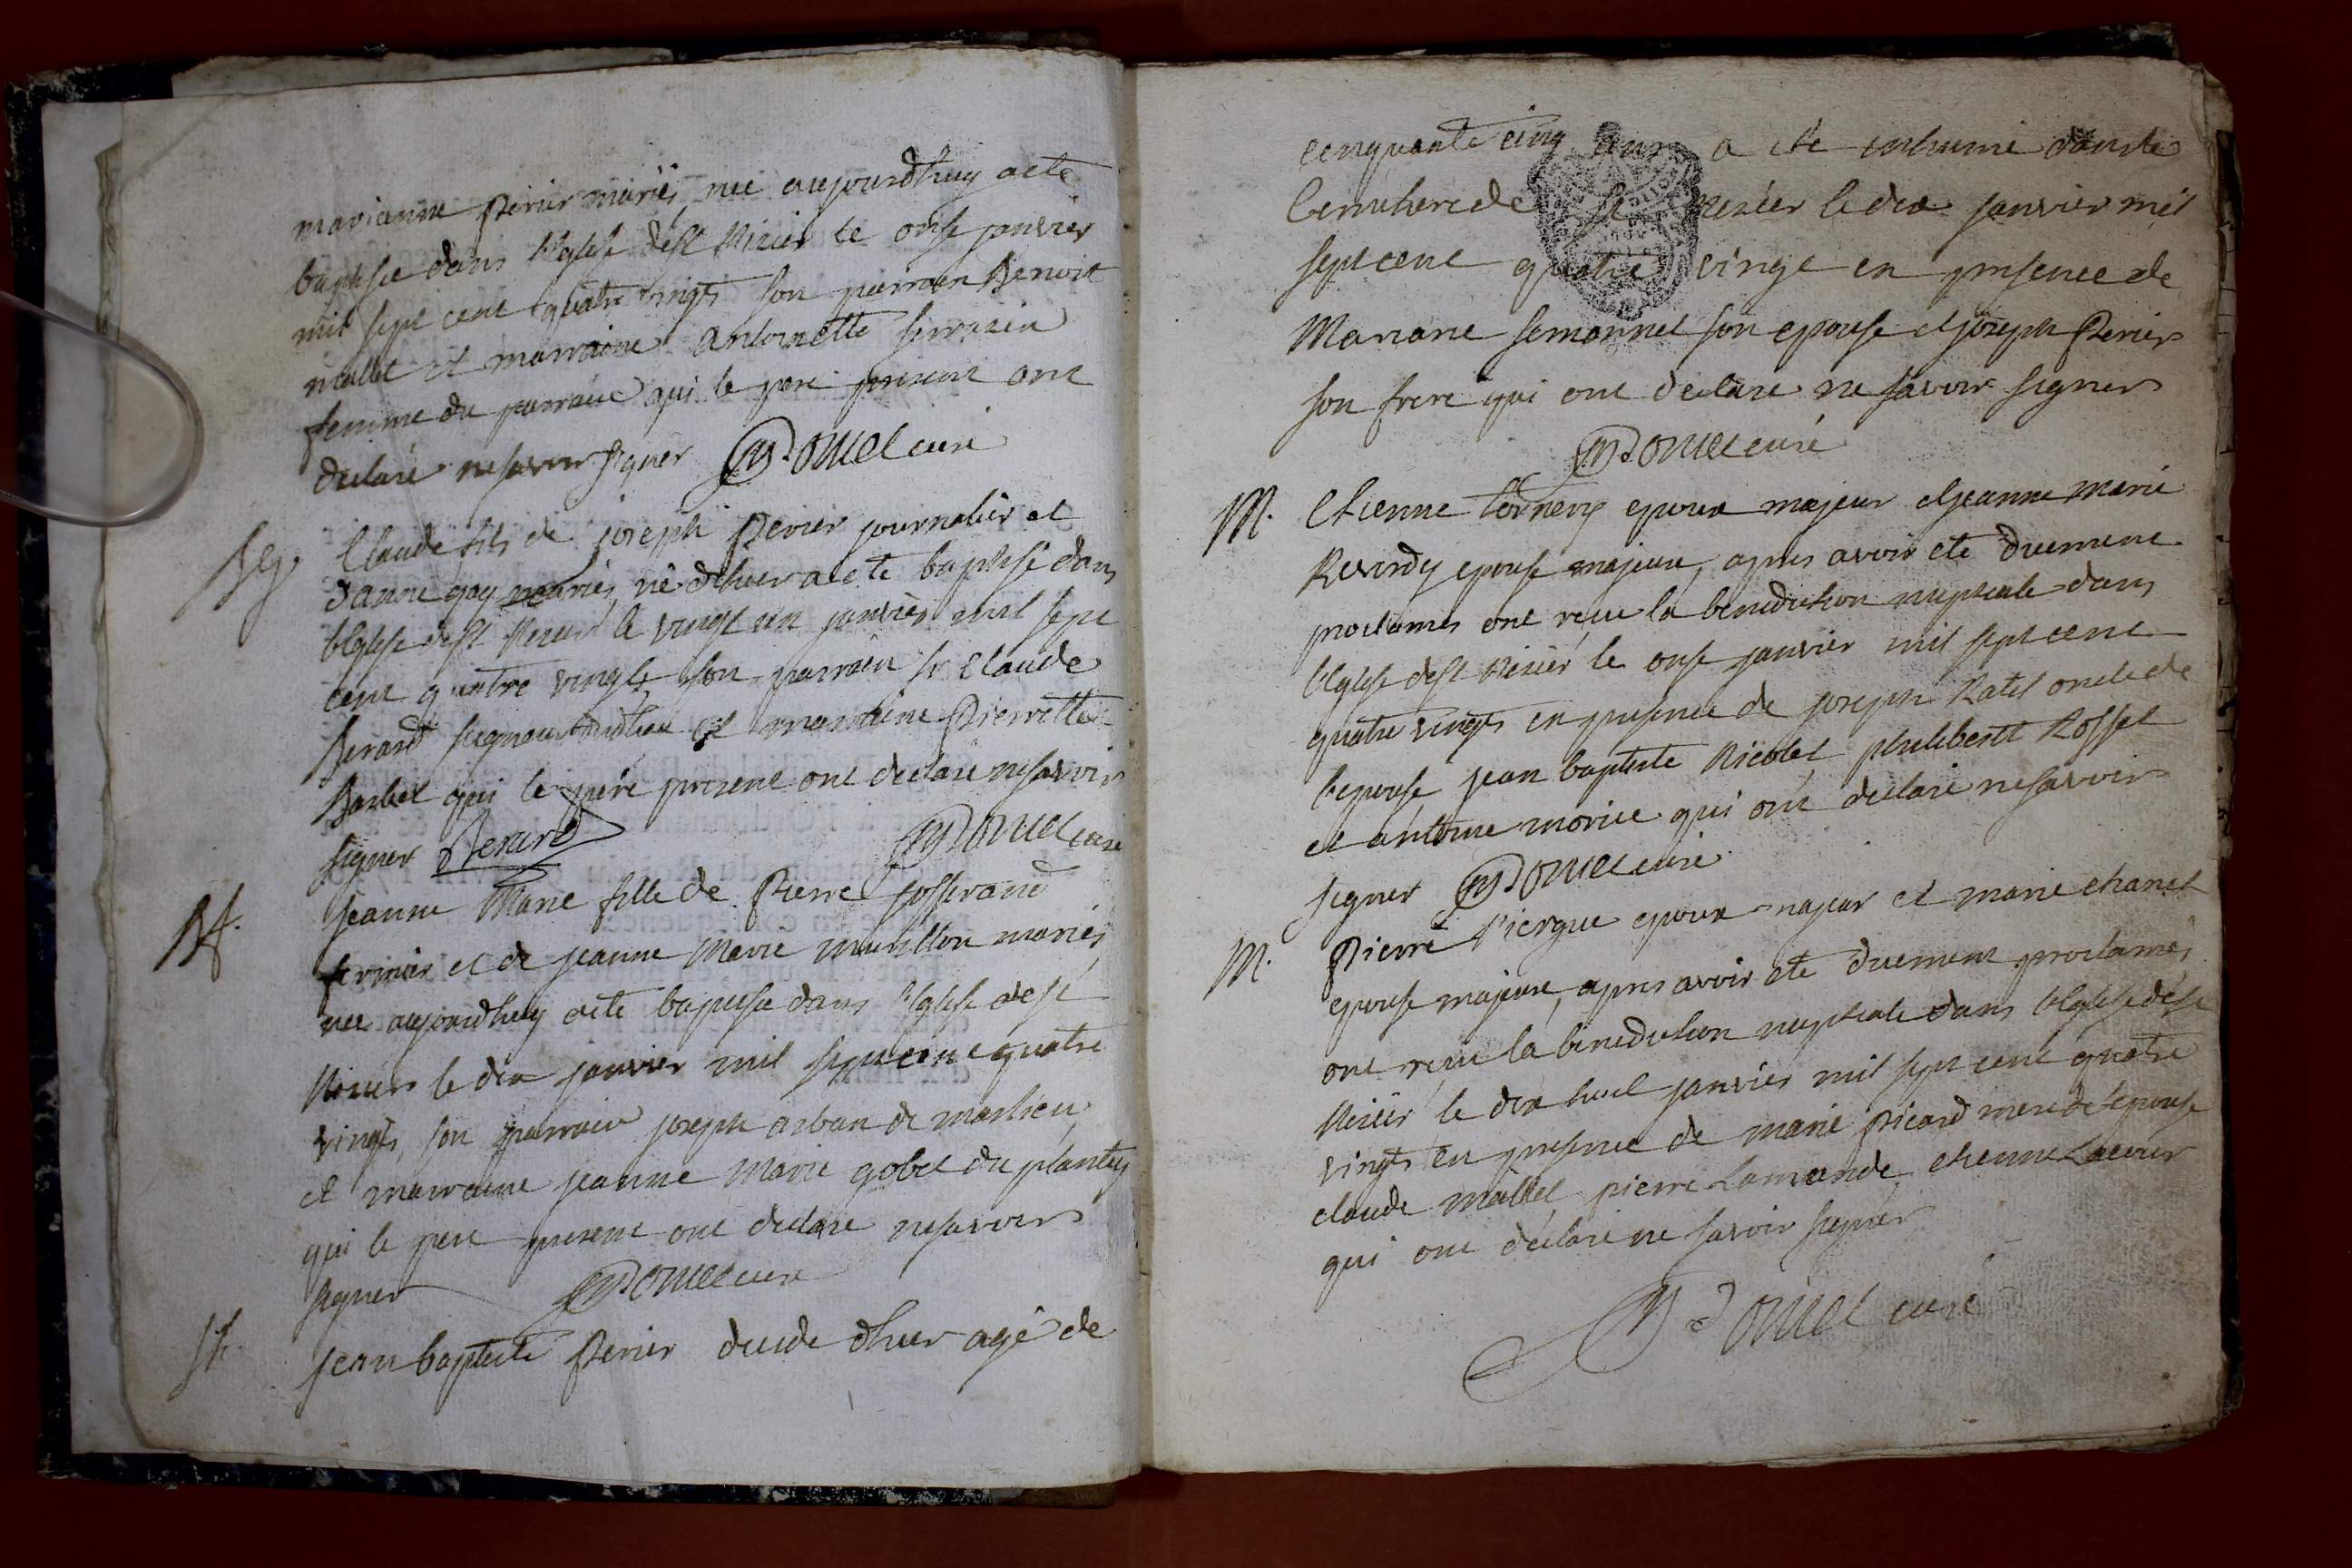 marianne Perier mariés, née aujourdhuy a été
baptisée dans l'eglise de st Nisier le onse janvier
mil sept cent quatre vingts son parrain Benoit
mallet et marraine antoinette serrasin
femme du parrain qui le pere present ont
declaré ne savoir signer Douiel curé
Claude fils de joseph Perier journalier et
d'anne gay mariés, né d'hier a été baptisé dans
l'eglise de st Nisier le vingt un janvier mil sept
cent quatre vingts, son parrain sr Claude
Berard et marraine Pierrette
Barbet qui le père present ont declaré ne savoir
signer Berard Douiel curé
Jeanne Marie fille de Pierre josserand
fermier et de jeanne Marie mariés,
née aujourdhuy a été baptisée dans l'eglise de st
Nisier le dix janvier mil sept cent quatre
vingts, son parrain joseph arban de marlieu,
et marraine jeanne Marie gobet du plantey
qui le pere present ont declaré ne savoir
signer Douiel curé
Jean baptiste Perier decedé d'hier agé de
cenquante cinq ans a été inhumé dans le
Cemitiere de st nisier le dix janvier mil
sept cent quatre vingt en presence de
Mariane semonnet son epouse et joseph Perier
son frere qui ont declaré ne savoir signer
Douiel curé
M. Etienne epoux majeur et jeanne marie
Revirdy epouse majeure, apres avoir été duement
proclamés ont reçu la benediction nuptiale dans
l'eglise de st Nisier le onse janvier mil sept cent
quatre vingts en presence de joseph Ratet oncle de
l'epouse, jean baptiste Nicolet philibertt Rosset
et antoine morice qui ont declaré ne savoir
signer Douiel curé
M. Pierre epoux majeur et marie chanet
epouse majeure, apres avoir été duement proclamés
ont reçu la benediction nuptiale dans l'eglise de st
Nisier le dix huit janvier mil sept cent quatre
vingts en presence de marie Picard mere de l'epouse
claude mallet, pierre Lamande, etienne
qui ont declaré ne savoir signer
Douiel curé